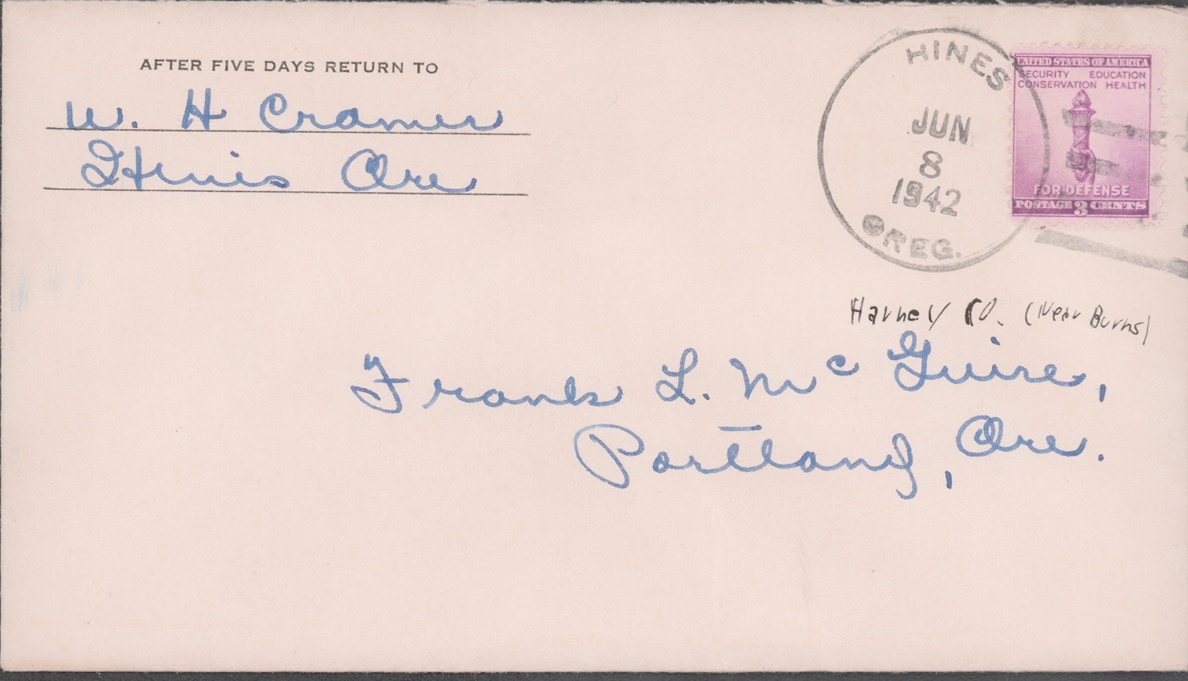 AFTER FIVE DAYS RETURN TO
W. H Cramer
Hines Ore
HINES
JUN
8
1942
OREG.
UNITED STATES OF AMERICA
SECURITY EDUCATION
CONSERVATION HEALTH
FOR DEFENSE
POSTAGE 3 CENTS
Harney Co. (Near Burns)
Frank L. McGuire,
Portland, Ore.